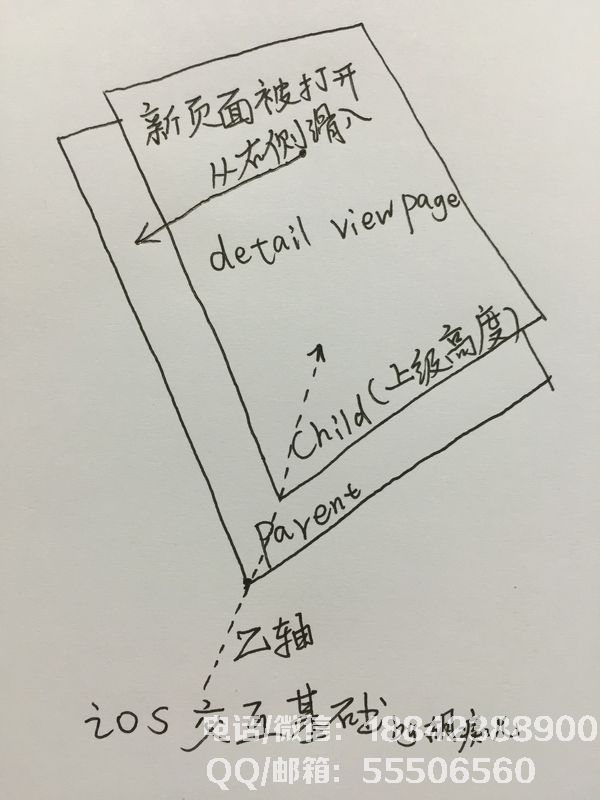 新页面被打开
从右侧滑入
detail view page
Child(上级高度)
Parent
Z轴
iOS 交互基础
电话/微信: 18842388900
QQ/邮箱: 55506560